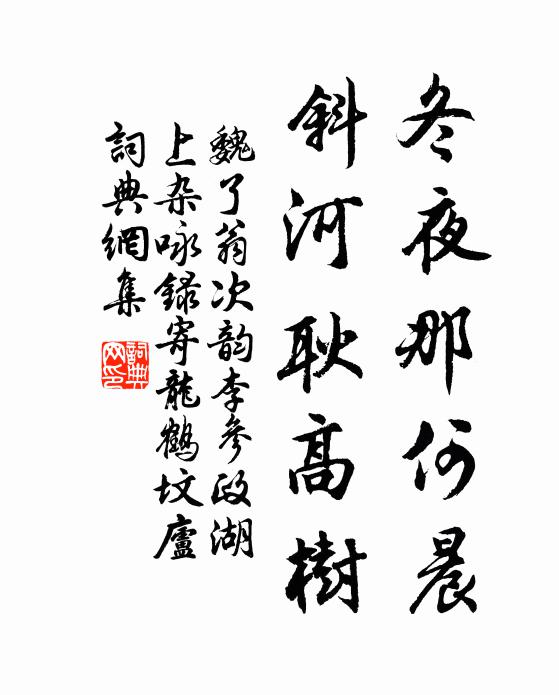 冬夜那何晨
斜河耿高樹
魏了翁次韵李參政湖
上杂咏録寄龍鶴坟廬
詞典網集
詞典
网印